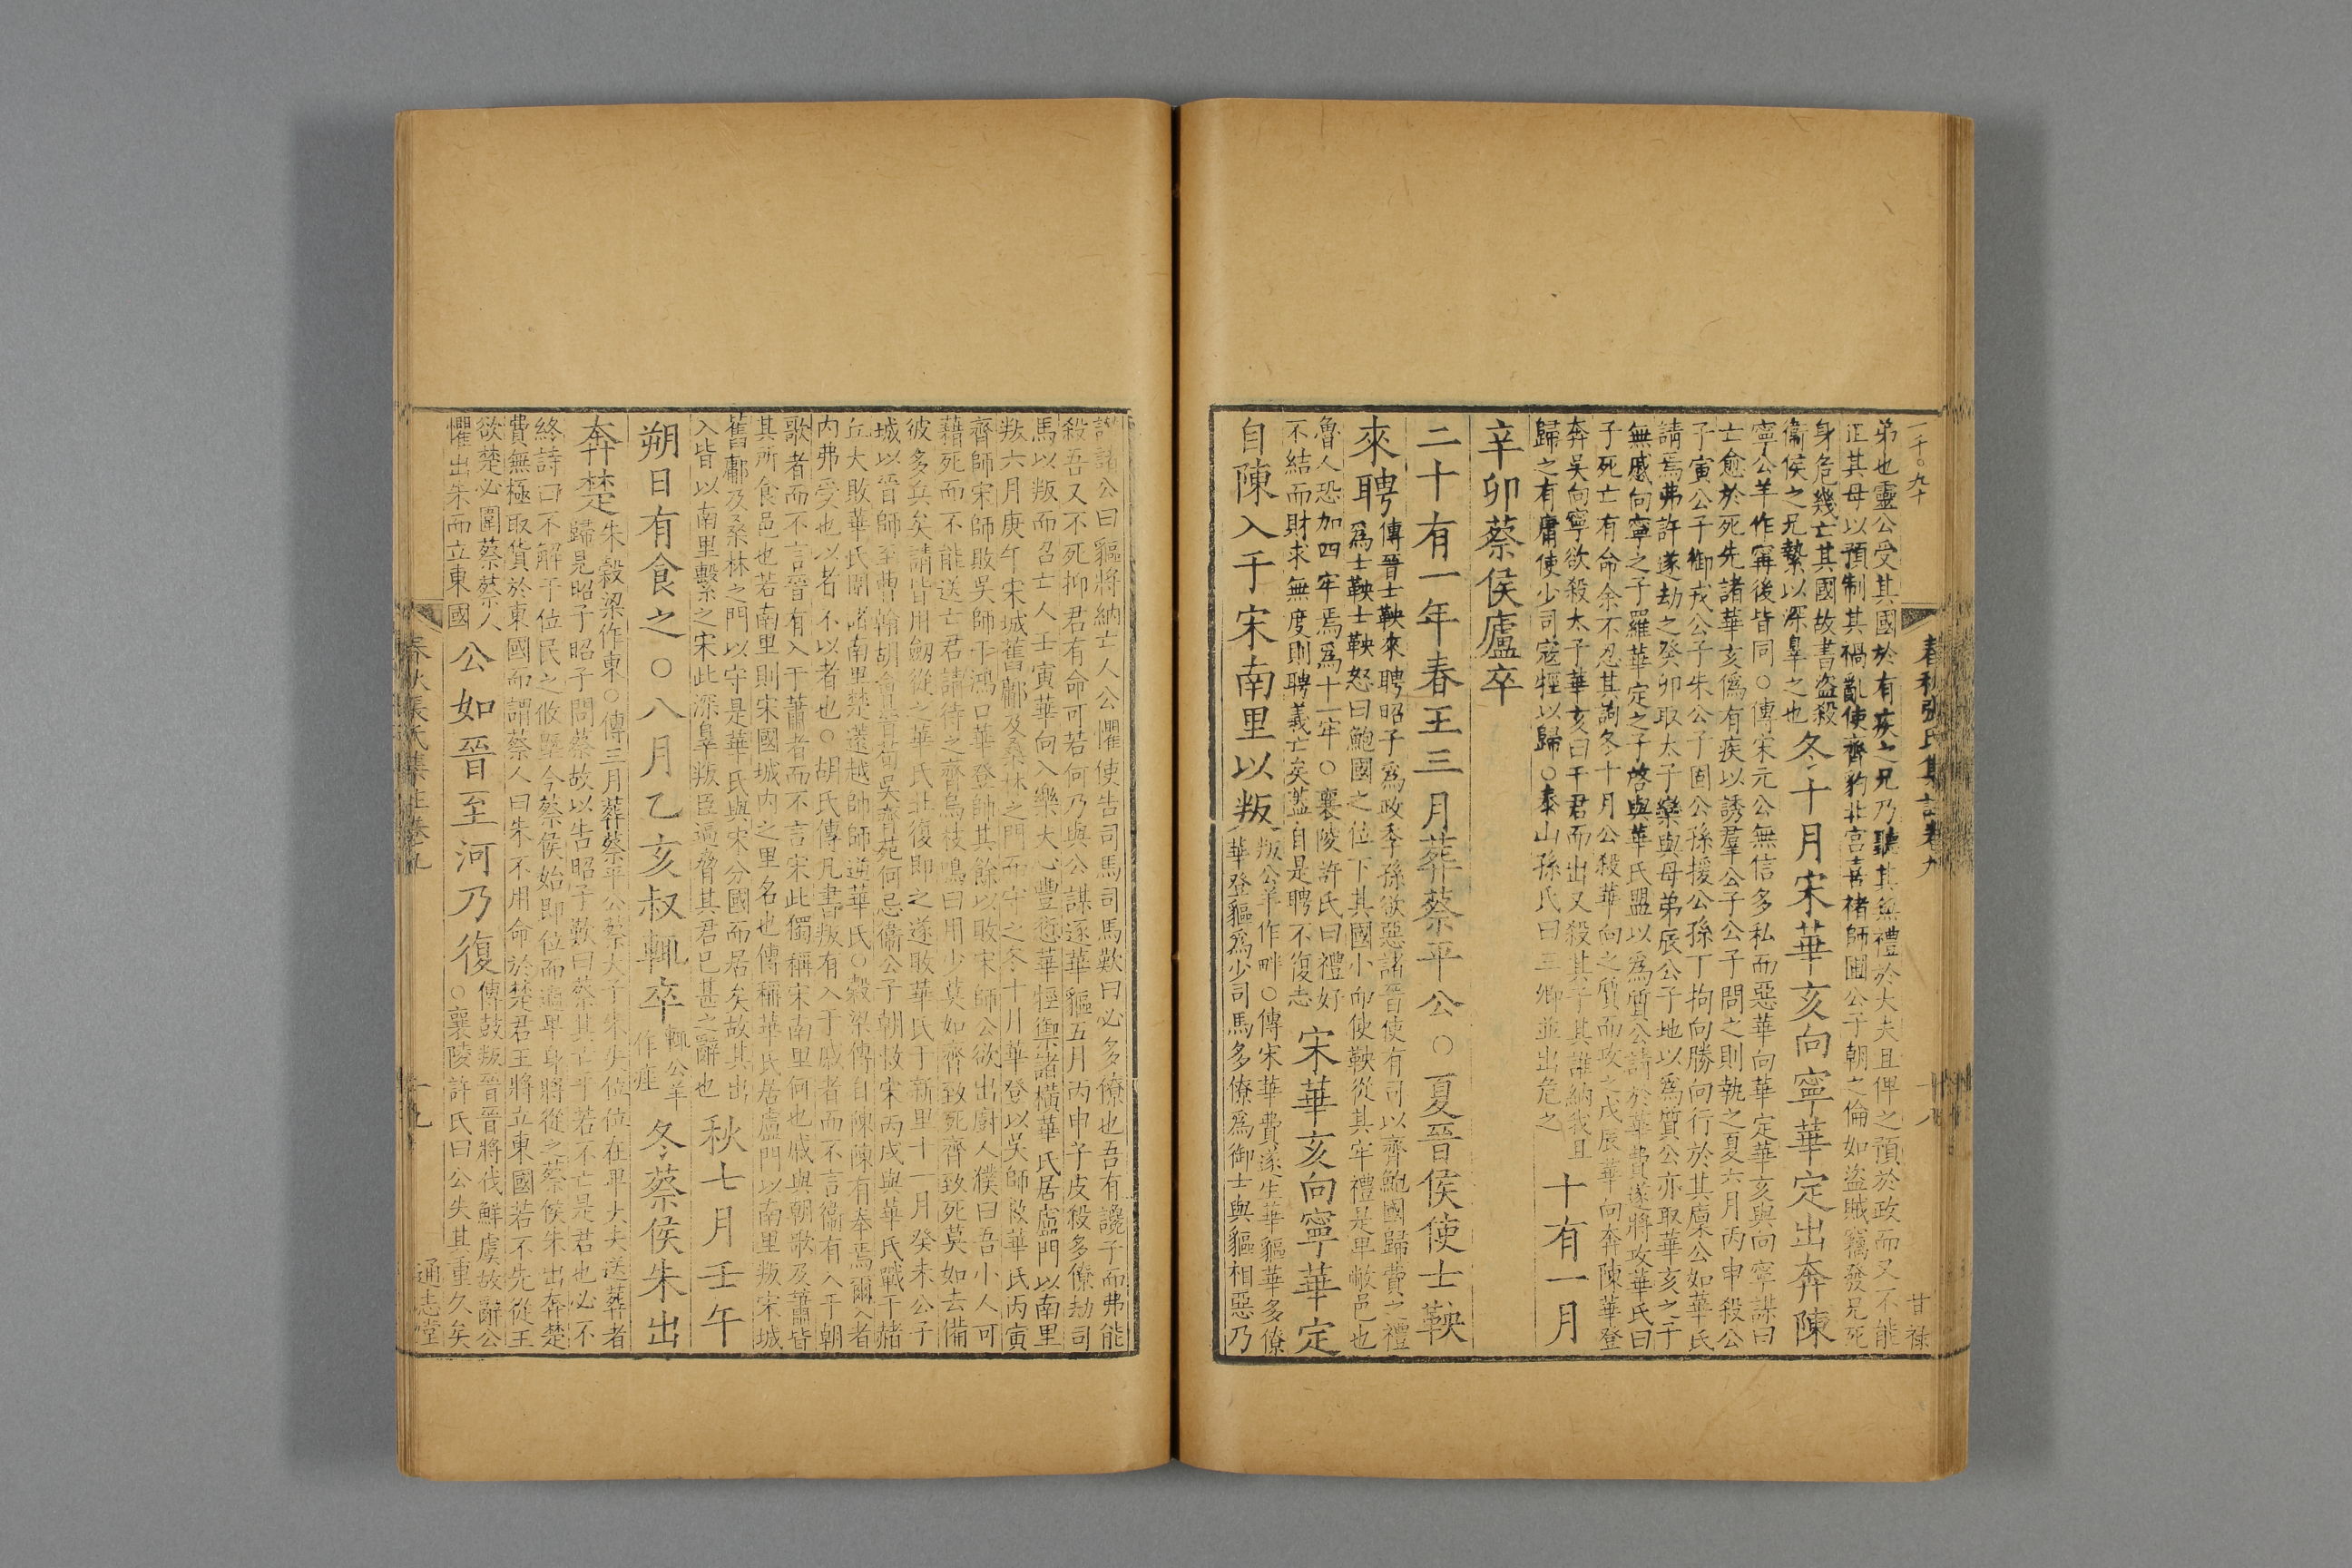 一千〇九十
春秋張氏集註卷九
十八
甘祿
弟也靈公受其國於有疾之兄乃聽其無禮於大夫且俾之預於政而又不能
正其母以預制其禍亂使齊豹北宮喜褚師圃公子朝之倫如盜賊竊發兄死
身危幾亡其國故書盜殺
衞侯之兄縶以深辠之也
冬十月宋華亥向寧華定出奔陳
寧公羊作甯後皆同○傳宋元公無信多私而惡華向華定華亥與向寧謀曰
士愈於死先諸華亥僞有疾以誘羣公子公子問之則執之夏六月丙申殺公
子寅公子御戎公子朱公子固公孫援公孫丁拘向勝向行於其廩公如華氏
請焉弗許遂劫之癸卯取太子欒與母弟辰公子地以爲質公亦取華亥之子
無慼向寧之子羅華定之子啓與華氏盟以爲質公請於華費遂將攻華氏曰
子死亡有命余不忍其訽冬十月公殺華向之質而攻之戊辰華向奔陳華登
奔吳向寧欲殺太子華亥曰干君而出又殺其子其誰納我且
歸之有庸使少司寇牼以歸○泰山孫氏曰三卿並出危之
十有一月
辛卯蔡侯廬卒
二十有一年春王三月葬蔡平公○夏晉侯使士鞅
來聘
傳晉士鞅來聘昭子爲政季孫欲惡諸晉使有司以齊鮑國歸費之禮
爲士鞅士鞅怒曰鮑國之位下其國小而使鞅從其牢禮是卑敝邑也
魯人恐加四牢焉爲十一牢○襄陵許氏曰禮好
不結而財求無度則聘義亡矣蓋自是聘不復志
宋華亥向寧華定
自陳入于宋南里以叛
叛公羊作畔○傳宋華費遂生華貙華多僚
華登貙爲少司馬多僚爲御士與貙相惡乃
譖諸公曰貙將納亡人公懼使告司馬司馬歎曰必多僚也吾有讒子而弗能
殺吾又不死抑君有命可若何乃與公謀逐華貙五月丙申子皮殺多僚劫司
馬以叛而召亡人壬寅華向入樂大心豐愆華牼禦諸橫華氏居盧門以南里
叛六月庚午宋城舊鄘及桑林之門而守之冬十月華登以吳師救華氏丙寅
齊師宋師敗吳師于鴻口華登帥其餘以敗宋師公欲出廚人濮曰吾小人可
藉死而不能送亡君請待之齊烏枝鳴曰用少莫如齊致死齊致死莫如去備
彼多兵矣請皆用劒從之華氏北復即之遂敗華氏于新里十一月癸未公子
城以晉師至曹翰胡會晉荀吳齊苑何忌衞公子朝救宋丙戌與華氏戰于赭
丘大敗華氏圍諸南里楚薳越帥師逆華氏○穀梁傳自陳陳有奉焉爾入者
内弗受也以者不以者也○胡氏傳凡書叛有入于戚者而不言衞有入于朝
歌者而不言晉有入于蕭者而不言宋此獨稱宋南里何也戚與朝歌及蕭皆
其所食邑也若南里則宋國城内之里名也傳稱華氏居盧門以南里叛宋城
舊鄘及桑林之門以守是華氏與宋分國而居矣故其出
入皆以南里繫之宋此深辠叛臣逼脅其君已甚之辭也
秋七月壬午
朔日有食之○八月乙亥叔輒卒
輒公羊
作痤
冬蔡侯朱出
奔楚
朱穀梁作東○傳三月葬蔡平公蔡大子朱失位位在卑大夫送葬者
歸見昭子昭子問蔡故以告昭子歎曰蔡其亡乎若不亡是君也必不
終詩曰不解于位民之攸墍今蔡侯始即位而適卑身將從之蔡侯朱出奔楚
費無極取貨於東國而謂蔡人曰朱不用命於楚君王將立東國若不先從王
欲楚必圍蔡蔡人
懼出朱而立東國
公如晉至河乃復
傳鼓叛晉晉將伐鮮虞故辭公
○襄陵許氏曰公失其重久矣
春秋張氏集註卷九
十九
通志堂